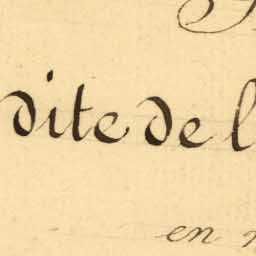 dite de l
en